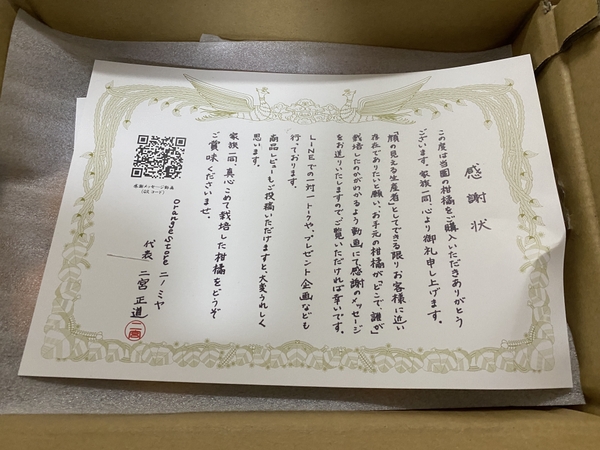 感謝状
この度は当園の柑橘をご購入いただきありがとう
ございます。家族一同、心より御礼申し上げます。
「顔の見える生産者」としてできる限りお客様に近い
存在でありたいと願い、お手元の柑橘が「どこで」「誰が」
栽培したのかがわかるよう動画にて感謝のメッセージ
をお送りいたしますのでご覧いただければ幸いです。
LINEでの一対一トークや、プレゼント企画なども
行っております。
商品レビューもご投稿いただけますと、大変うれしく
思います。
家族一同、真心こめて栽培した柑橘をどうぞ
ご賞味くださいませ。
感謝メッセージ動画
(QRコード)
Orange Grove ニノミヤ
代表 二宮 正道
二宮